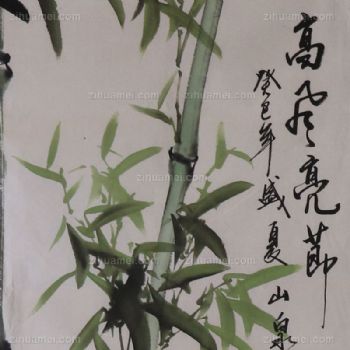 高风亮节
癸巳年盛夏山泉
zihuamei.com
zihuamei.com
zihuamei.com
zihuamei.com
zihuamei.com
zihuamei.com
zihuamei.com
zihuamei.com